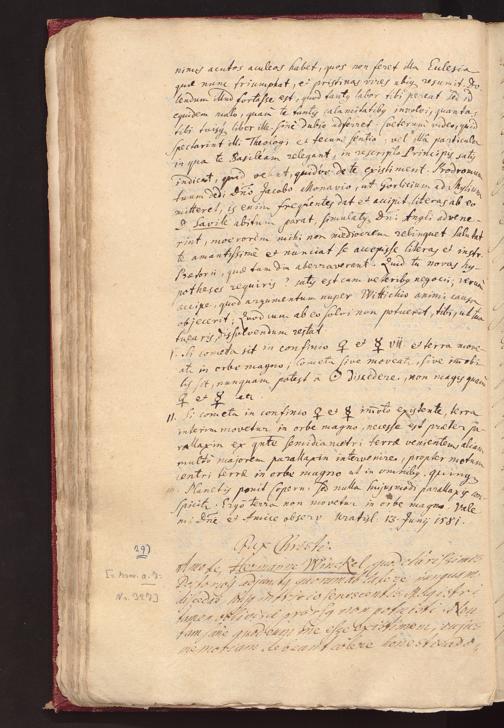 nimis acutos aculeos habet, quos non feret illa Ecclesia
quæ nunc triumphat, et pristinas vires ubiq resumit. Do
lendum illud fortasse est, quod tantus labor tibi pereat sed id
equidem malo, quam te tantis calamitatibus involvi, quantas
tibi tuisq liber ille sine dubio adferret. Coeterum video, quid
spectarint illi Theologi et tecum sentio: vel illa particula
in qua te Basileam relegant, in rescripto Principis satis
indicat, quid velint, quidve de te existiment. Prodromum
tuum dedi Dno Jacobo Monavio, ut Gorlicium ad
mitteret, is enim frequentes dat et accipit literas ab eo
D. Savile abitum parat, simulatq Dni Angli advene-
rint, moerorem mihi non mediocrem relinquet salutat
te amantissime et nunciat se accepisse literas et instr.
Prætorii, quæ tamdiu aberraverant. Quid tu novas hy-
potheses requiris? satis est cum veteribus negocii, verum
accipe, quod argumentum nuper Wittichio animi causa
objecerit: Quod cum ab eo solvi non potuerit, tibi, ut
tuearis, dissolvendum restat.
I. Si cometa sit in confinio ♀ et ☿ et terra move-
atur in orbe magno; Cometa sive moveatur, sive immobi-
lis sit, nunquam potest à ☉ discedere, non magis quam
♀ et ☿
II. Si cometa in confinio ♀ et ☿ immoto existente, terra
interim movetur in orbe magno, necesse est præter pa-
rallaxin ex qnte semidiametri terræ venientem aliam
multo majorem parallaxin intervenire, propter motum
centri terræ in orbe magno ut in omnibus,
Planetis ponit Copern: sed nulla hujusmodi parallaxis con-
spicitur. Ergo terra non movetur in orbe magno. Vale
mi Dne et Amice observ. Uratisl. 13 Junij 1581.
Pax Christi.
Hermanne Winckel, quod clarissimus
tamen oblivisci prorsus non potuisti. Non
tam sane quod eum me esse existimem, cujus
291
No. 327]